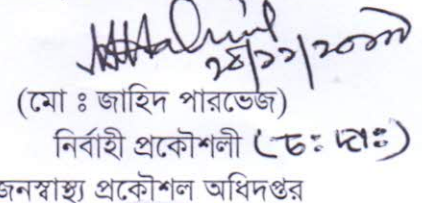 (মো ঃ জাহিদ পারভেজ)
নির্বাহী প্রকৌশলী (চঃ দাঃ)
জনস্বাস্থ্য প্রকৌশল অধিদপ্তর